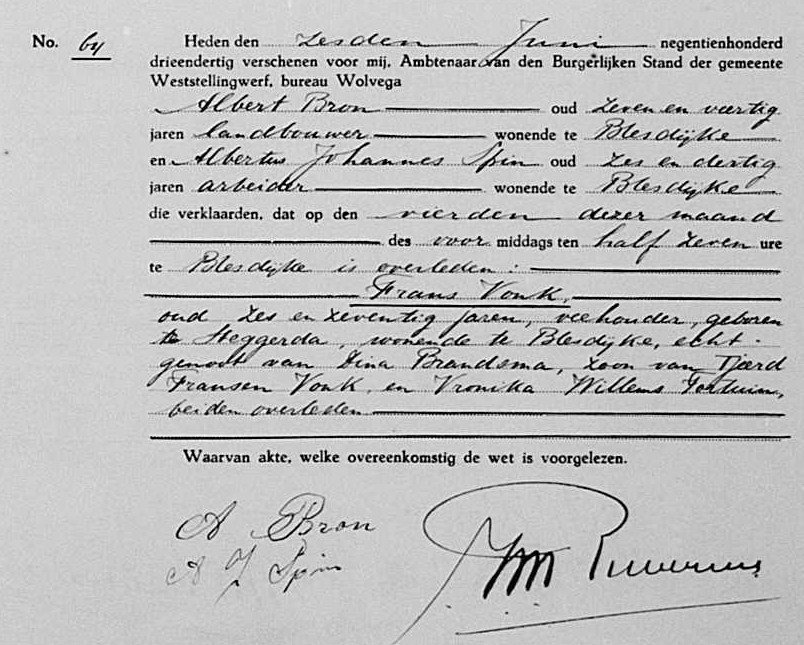 No. 64 Heden den zesden Juni negentienhonderd
drieendertig verschenen voor mij, Ambtenaar van den Burgerlijken Stand der gemeente
Weststellingwerf, bureau Wolvega
Albert Bron oud zeven en veertig
jaren landbouwer wonende te Blesdijke
en Albertus Johannes Spin oud zes en dertig
jaren arbeider wonende te Blesdijke
die verklaarden, dat op den vierden dezer maand
des voor middags ten half zeven ure
te Blesdijke is overleden:
Frans Vonk,
oud zes en zeventig jaren, veehouder, geboren
te Steggerda, wonende te Blesdijke, echt-
genoot van Dina Brandsma, zoon van Tjærd
Fransen Vonk en Vronika Willems Fortuin,
beiden overleden
Waarvan akte, welke overeenkomstig de wet is voorgelezen.
A Bron
A J Spin